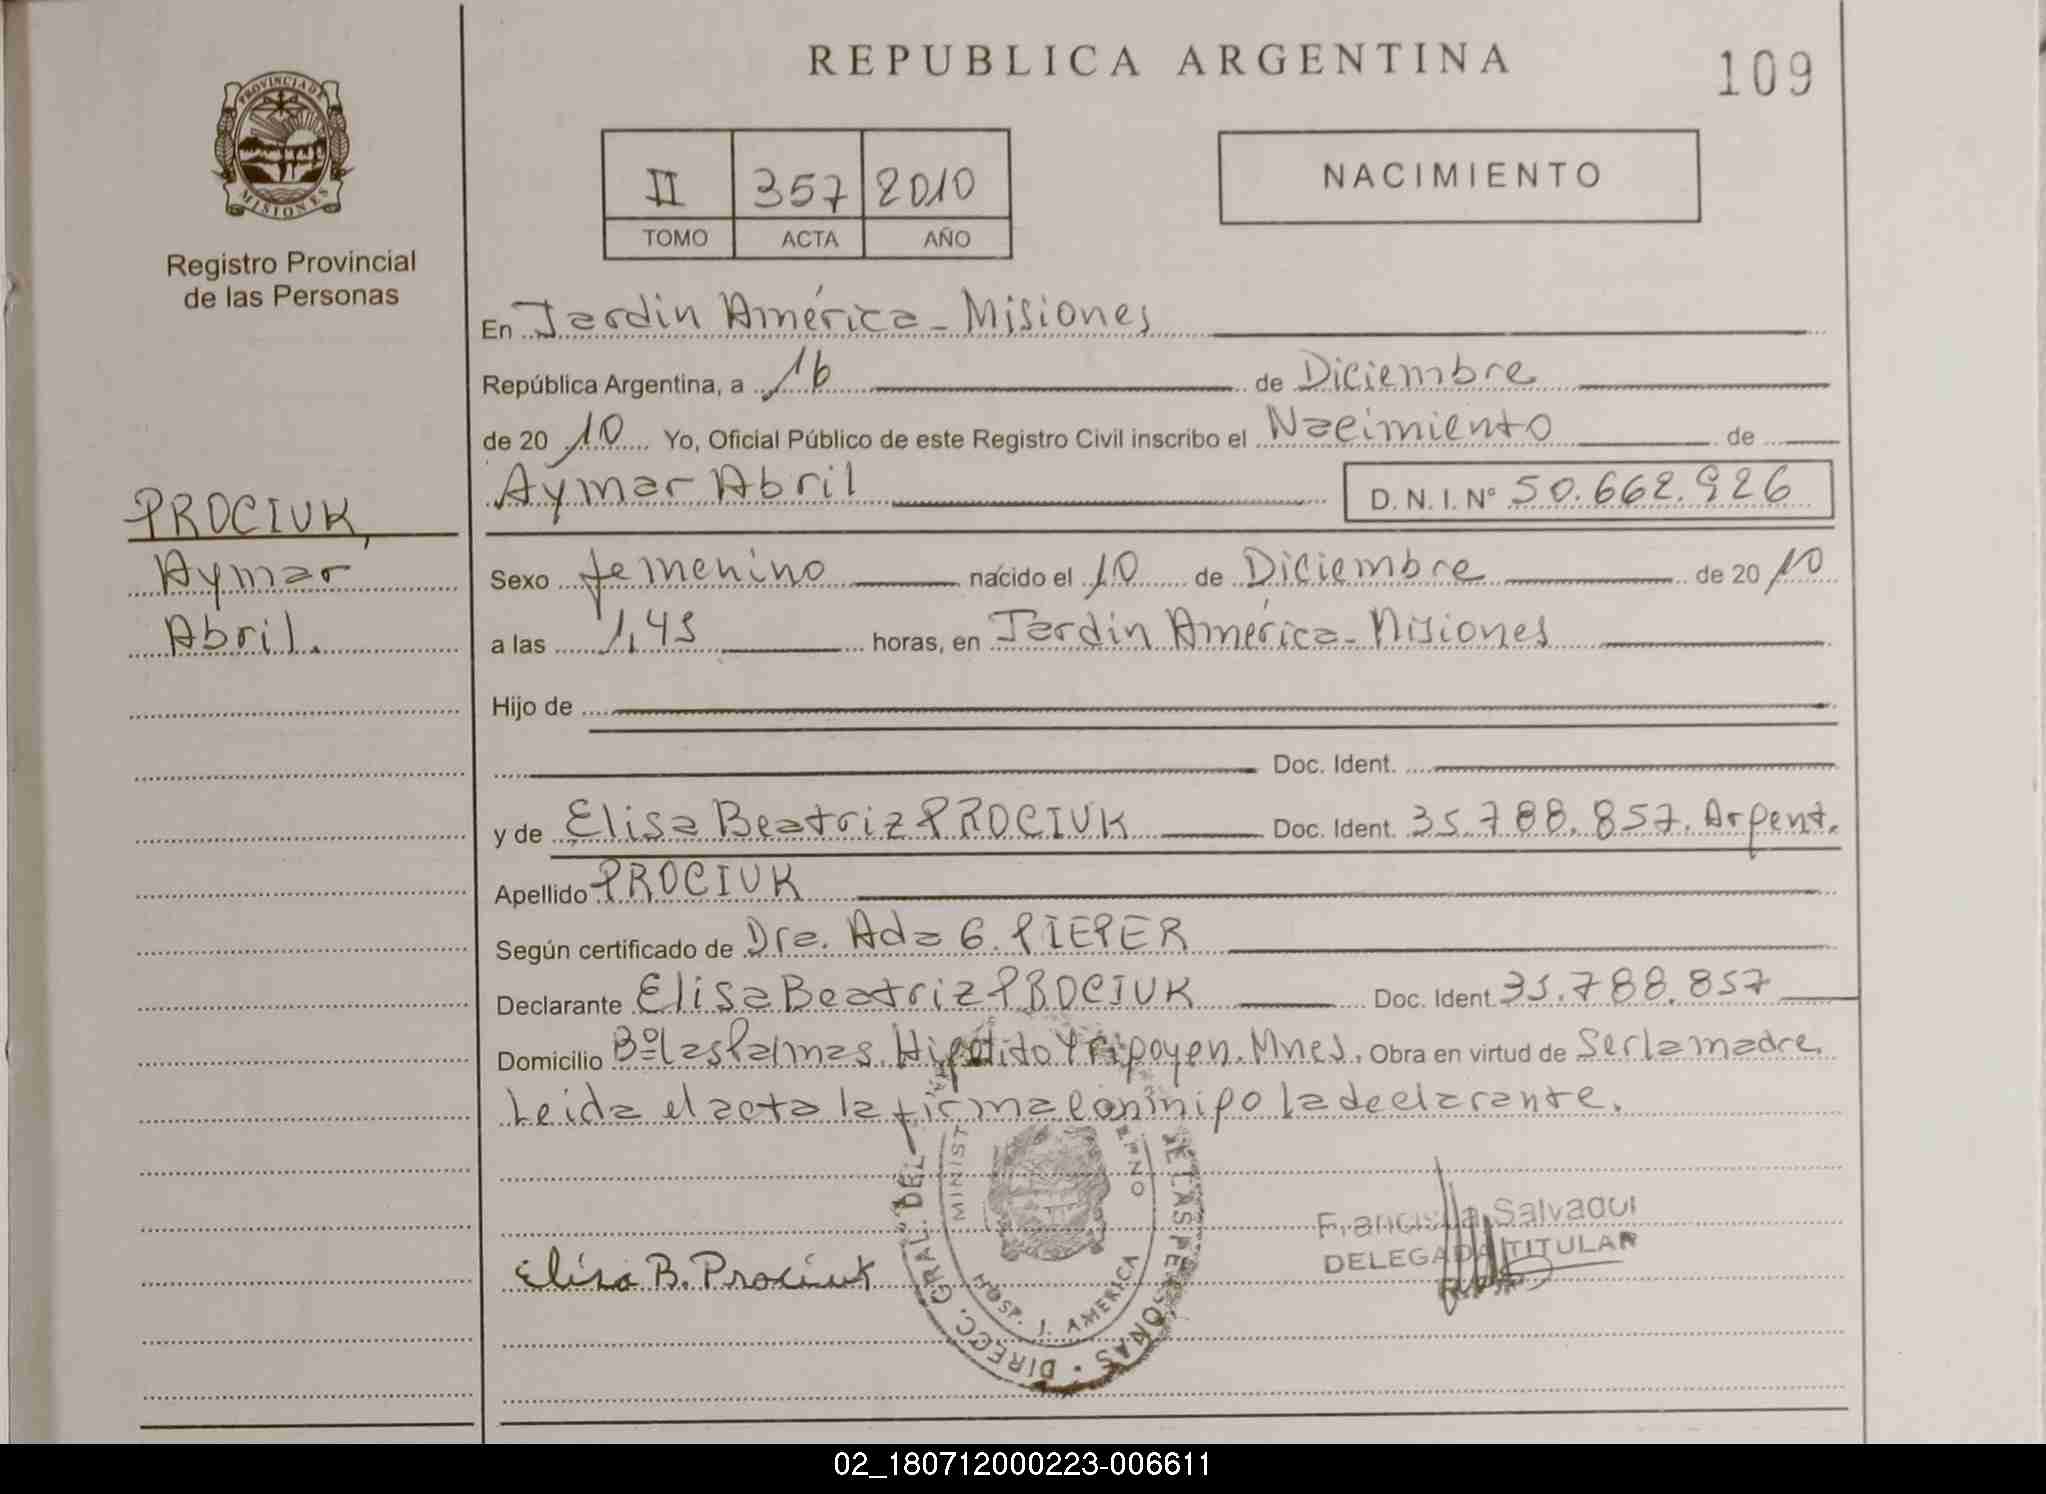 REPUBLICA ARGENTINA
109
PROVINCIA DE
MISIONES
Registro Provincial
de las Personas
II 357 2010
TOMO ACTA AÑO
NACIMIENTO
En Jardín América - Misiones
República Argentina, a 16 de Diciembre
de 20 10 Yo, Oficial Público de este Registro Civil inscribo el Nacimiento de
Aymar Abril D.N.I.Nº 50.662.926
PROCIUK,
Aymar
Abril.
Sexo femenino nacido el 10 de Diciembre de 20 10
a las 1,45 horas, en Jardín América - Misiones
Hijo de
Doc. Ident.
y de Elisa Beatriz PROCIUK Doc. Ident. 35.788.857. Argent.
Apellido PROCIUK
Según certificado de Dra. Ada G. PIEPER
Declarante Elisa Beatriz PROCIUK Doc. Ident. 35.788.857
Domicilio Bº Las Palmas. Hipólito Yrigoyen. Mnes. Obra en virtud de Ser la madre.
Leída el acta la firma conmigo la declarante.
Elisa B. Prociuk
DIRECC. GRAL. DEL DE LAS PERSONAS
MINIST
HOSP. J. AMERICA
Salvador
DELEGADA TITULAR
02_180712000223-006611